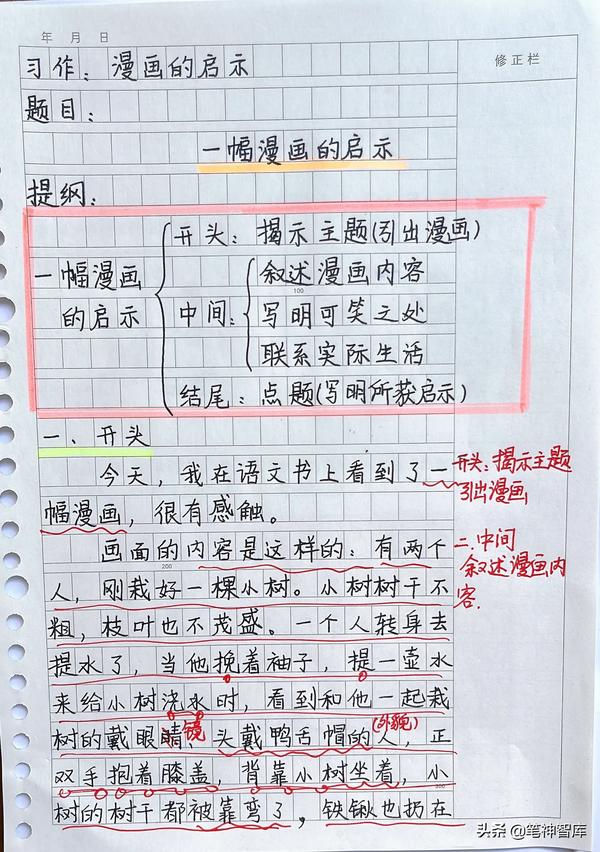 年 月 日
修正栏
习作：漫画的启示
题目：
一幅漫画的启示
提纲：
开头：揭示主题(引出漫画)
一幅漫画
的启示
叙述漫画内容
100
中间：写明可笑之处
联系实际生活
结尾：点题(写明所获启示)
一、开头
今天，我在语文书上看到了一
开头：揭示主题
引出漫画
幅漫画，很有感触。
画面的内容是这样的：有两个
二.中间
叙述漫画内
容.
200
人，刚栽好一棵小树。小树树干不
粗，枝叶也不茂盛。一个人转身去
提水了，当他挽着袖子，提一壶水
来给小树浇水时，看到和他一起栽
树的戴眼睛镜、头戴鸭舌帽的人，正
(外貌)
双手抱着膝盖，背靠小树坐着，小
300
树的树干都被靠弯了，铁锹也扔在
头条@笔神智库